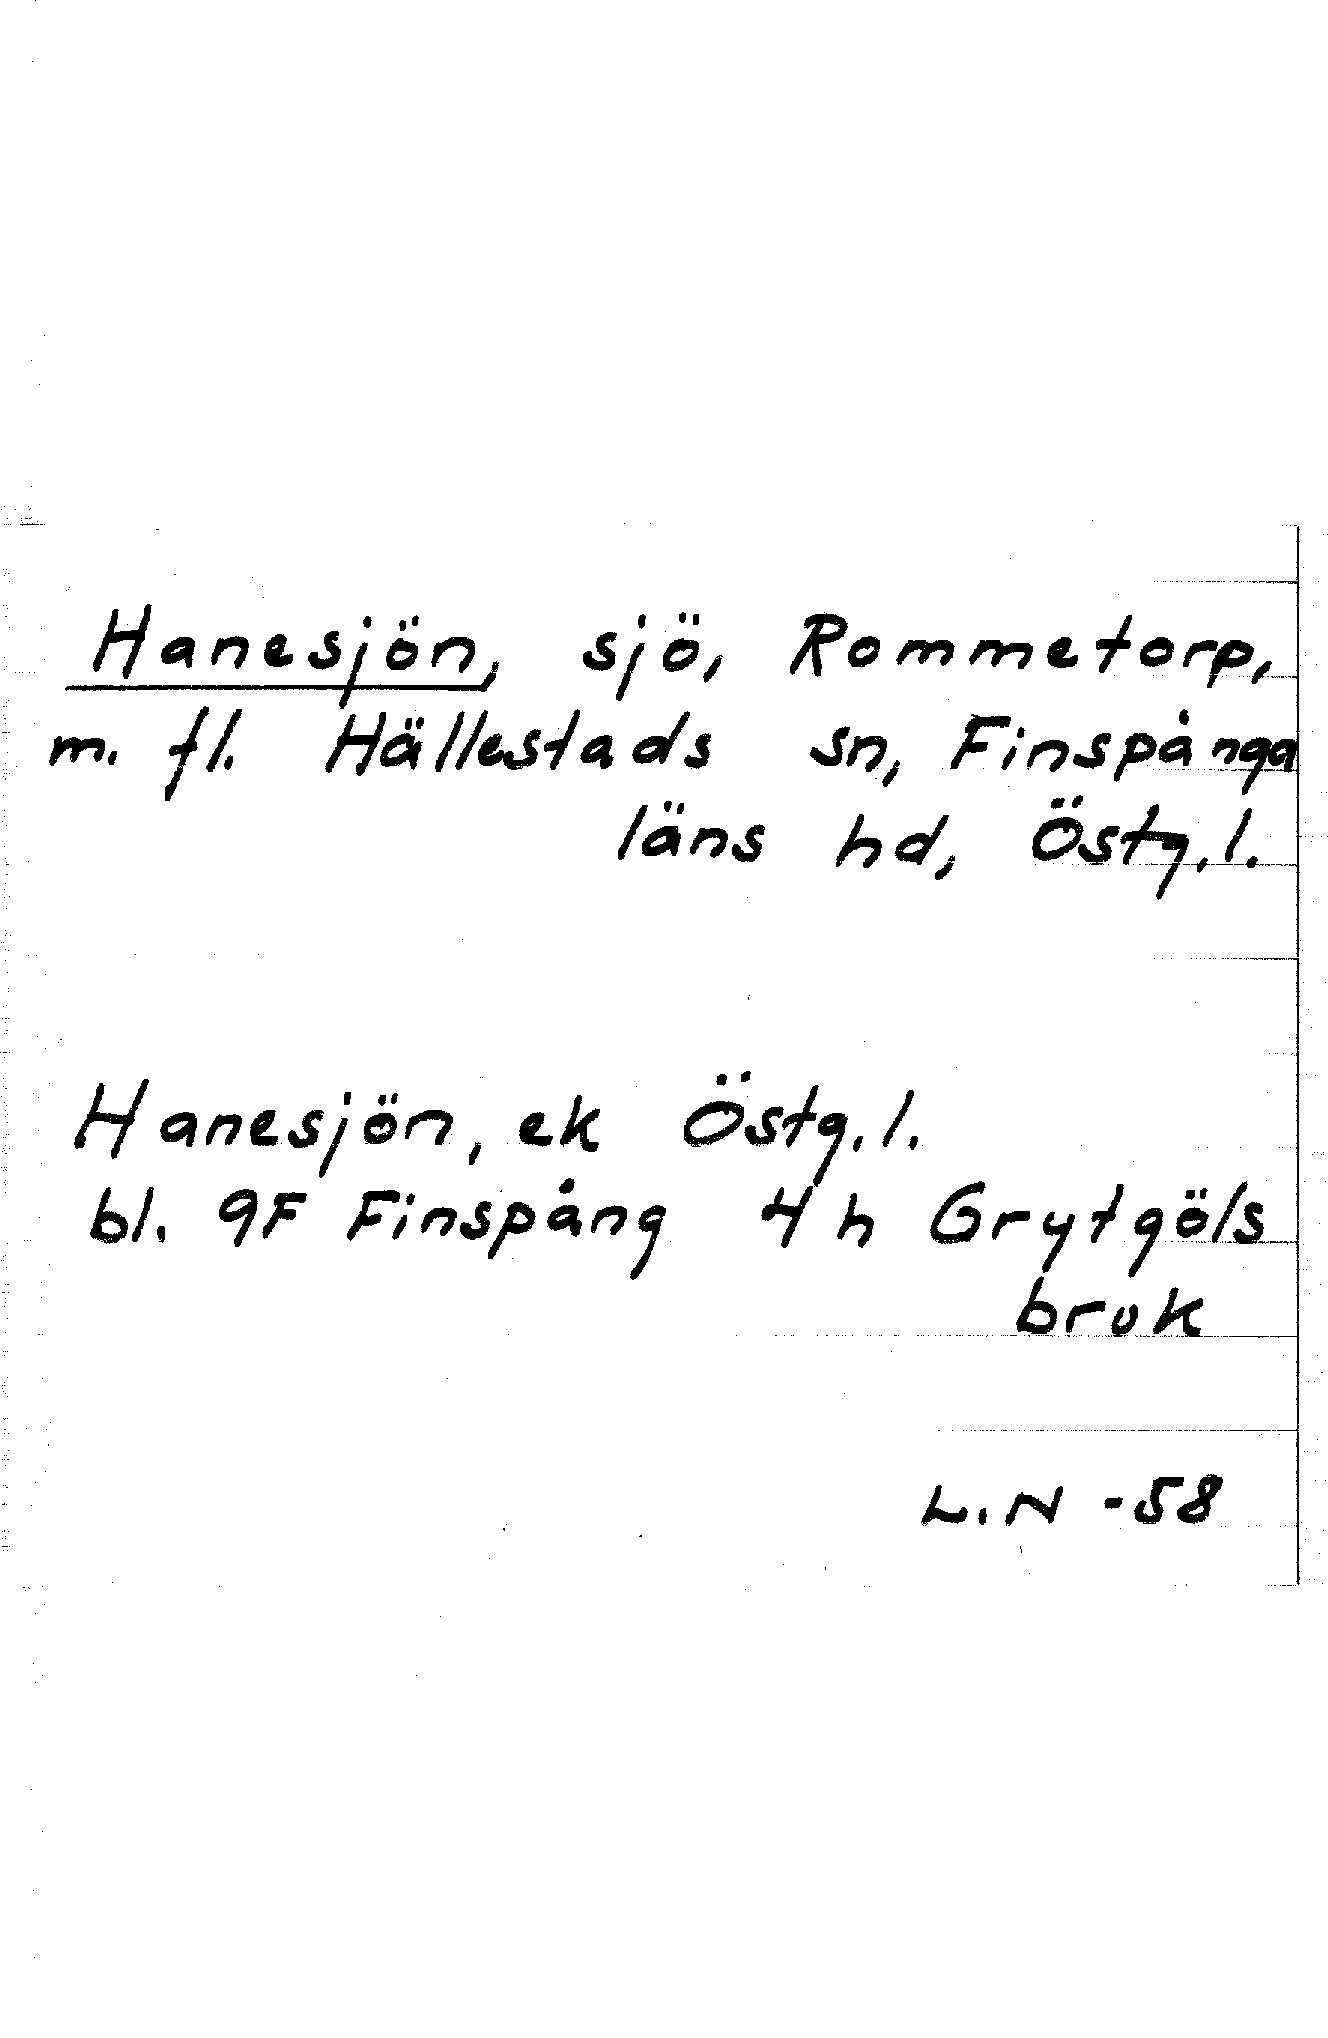 Hanesjön, sjö, Rommetorp,
m. fl. Hällestads sn, Finspånga
läns hd, Östg. l.
Hanesjön, ek Östg. l.
bl. 9F Finspång 4 h Grytgöls
bruk
L. N -58